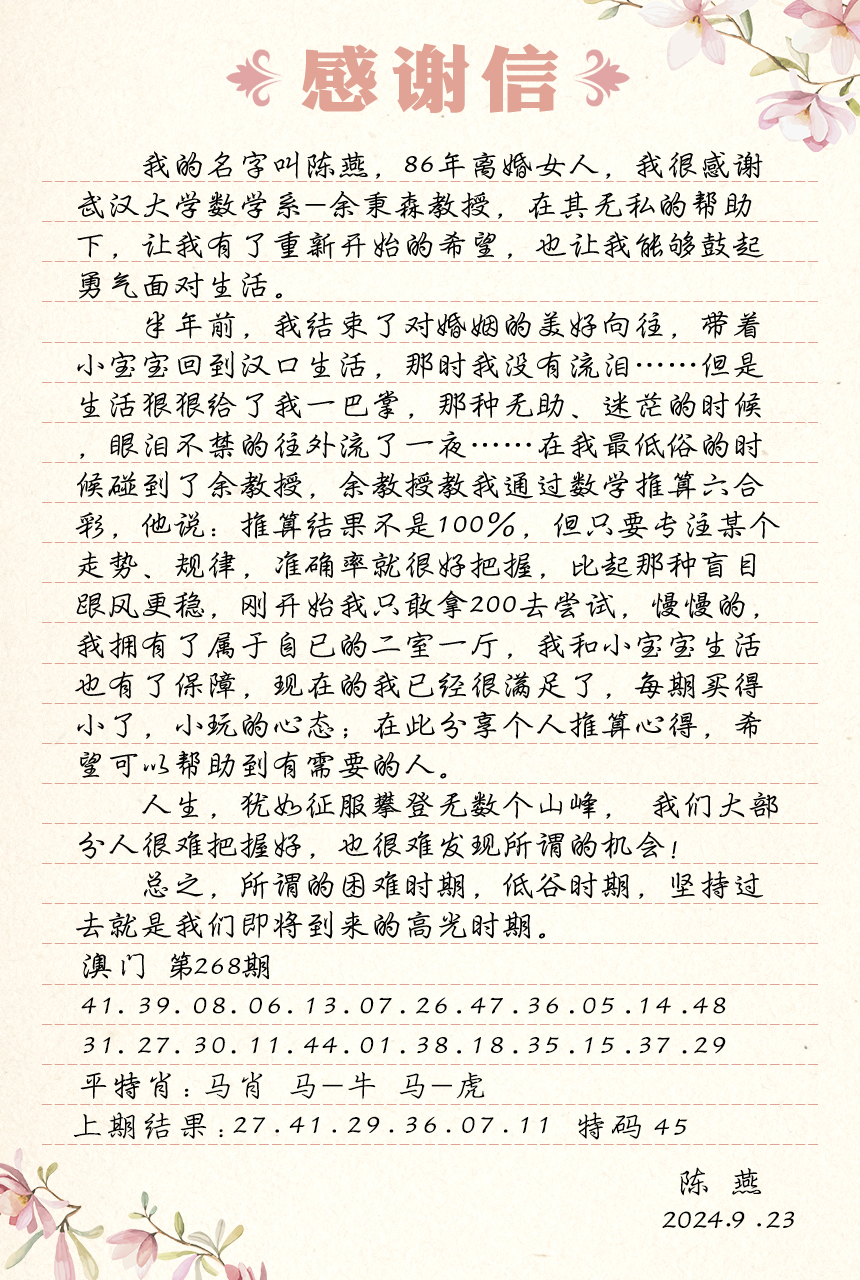 感谢信
我的名字叫陈燕，86年离婚女人，我很感谢
武汉大学数学系—余秉森教授，在其无私的帮助
下，让我有了重新开始的希望，也让我能够鼓起
勇气面对生活。
半年前，我结束了对婚姻的美好向往，带着
小宝宝回到汉口生活，那时我没有流泪……但是
生活狠狠给了我一巴掌，那种无助、迷茫的时候
，眼泪不禁的往外流了一夜……在我最低俗的时
候碰到了余教授，余教授教我通过数学推算六合
彩，他说：推算结果不是100%，但只要专注某个
走势、规律，准确率就很好把握，比起那种盲目
跟风更稳，刚开始我只敢拿200去尝试，慢慢的，
我拥有了属于自已的二室一厅，我和小宝宝生活
也有了保障，现在的我已经很满足了，每期买得
小了，小玩的心态；在此分享个人推算心得，希
望可以帮助到有需要的人。
人生，犹如征服攀登无数个山峰， 我们大部
分人很难把握好，也很难发现所谓的机会！
总之，所谓的困难时期，低谷时期，坚持过
去就是我们即将到来的高光时期。
澳门 第268期
41.39.08.06.13.07.26.47.36.05.14.48
31.27.30.11.44.01.38.18.35.15.37.29
平特肖：马肖 马—牛 马—虎
上期结果：27.41.29.36.07.11 特码 45
陈 燕
2024.9.23